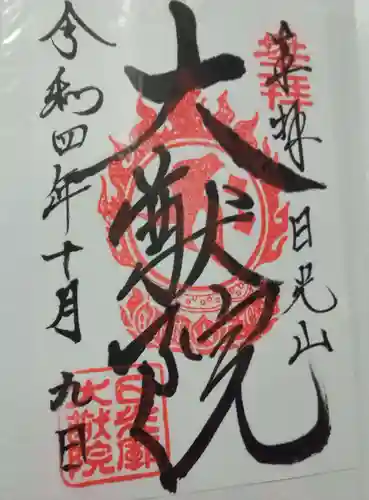 奉拝 日光山
大猷院
令和四年十月九日
奉拝
日光廟
大猷院